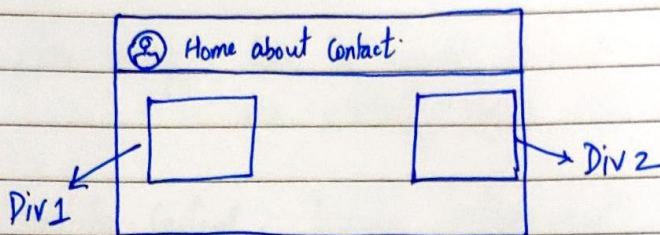 Home about Contact
Div1
Div 2